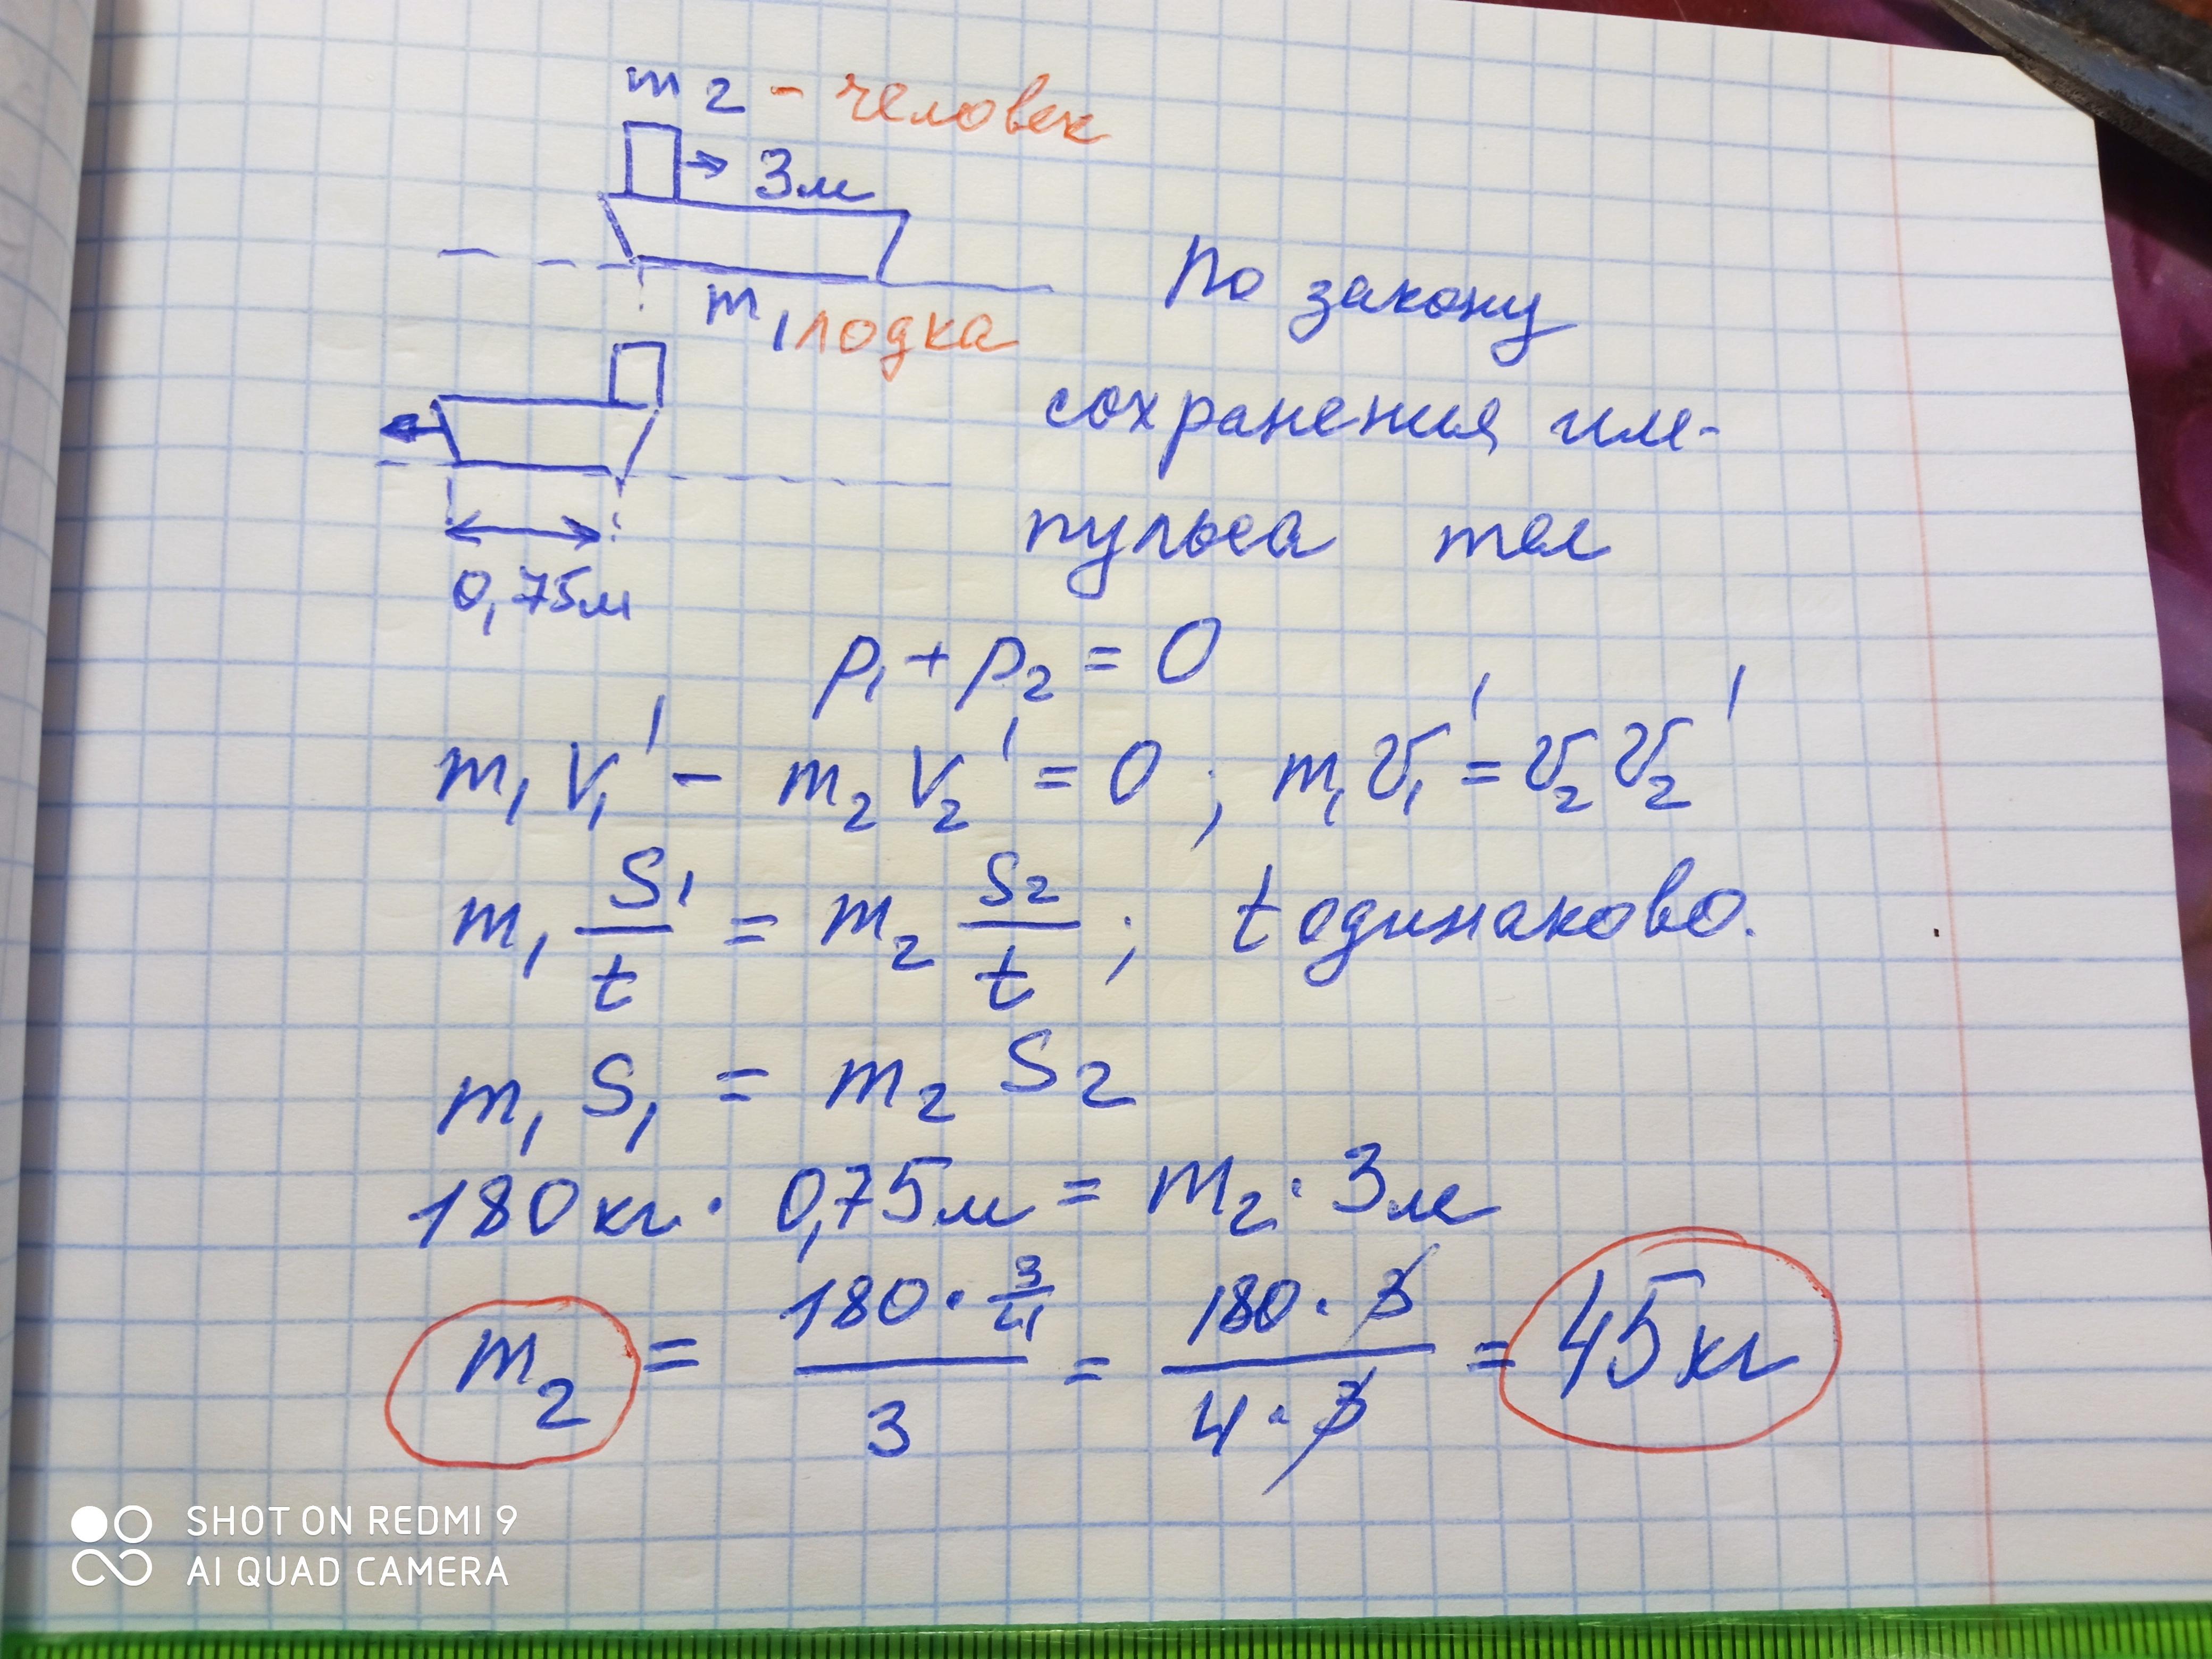 m2 - человек
3м
m1 лодка
По закону
сохранения им-
пульса тел
0,75м
p1 + p2 = 0
m1 v1' - m2 v2' = 0 ; m1 v1' = v2 v2'
m1 S1/t = m2 S2/t ; t одинаково.
m1 S1 = m2 S2
180кг · 0,75м = m2 · 3м
m2 = 180 · 3/4 / 3 = 180 · 3 / 4 · 3 = 45кг
SHOT ON REDMI 9
AI QUAD CAMERA